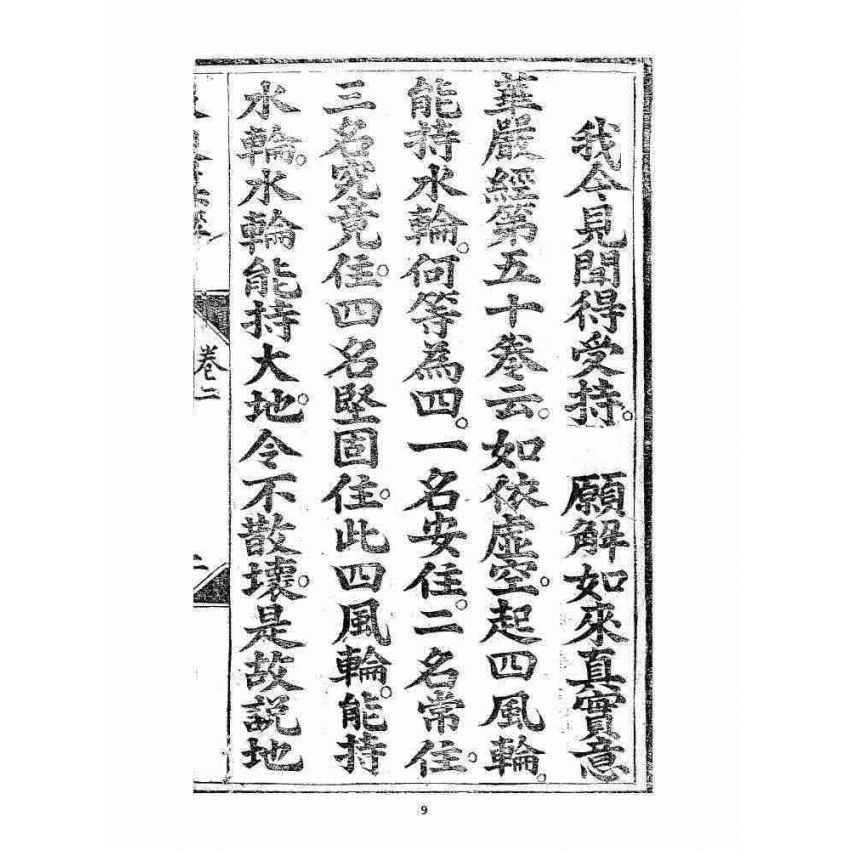 我今見聞得受持。　願解如來真實意
華嚴經第五十卷云。如依虛空。起四風輪。
能持水輪。何等為四。一名安住。二名常住。
三名究竟住。四名堅固住。此四風輪。能持
水輪。水輪能持大地。令不散壞。是故說地
卷二
二
9